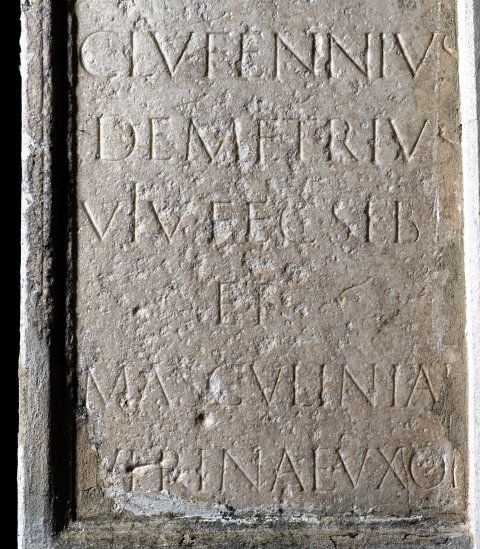 CLVFENNIVS
DEMETRIVS
VIV FEC SIBI
ET
MASCVLINIAE
VERINAE VXORI